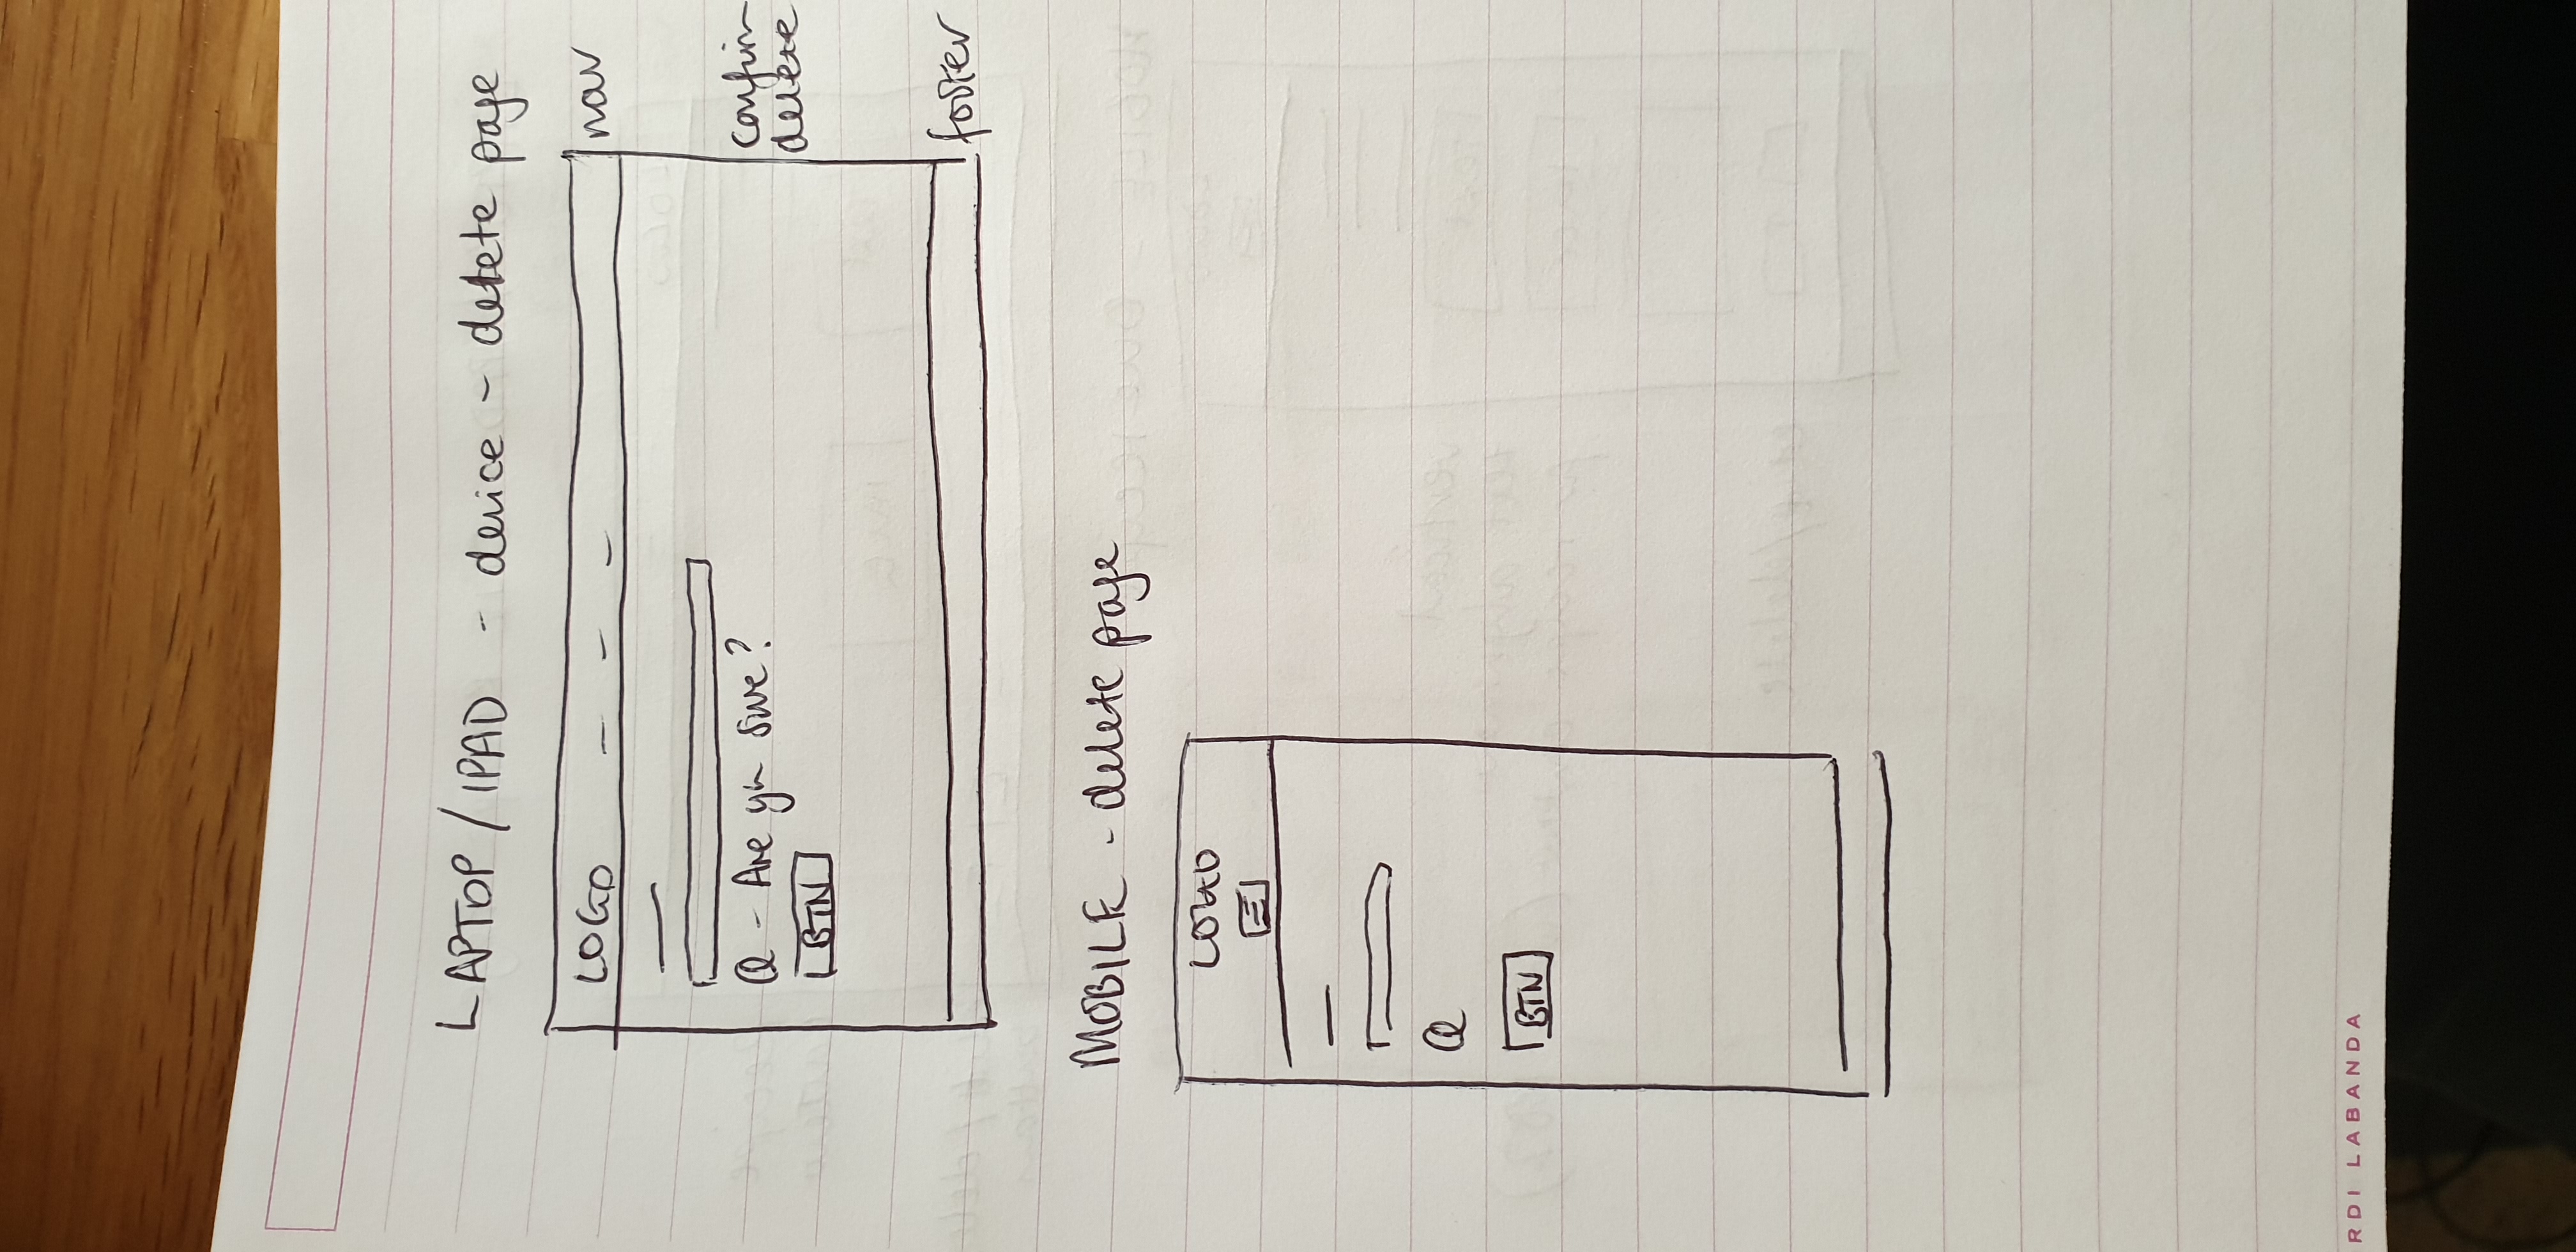 LAPTOP / IPAD - device - delete page
LOGO
nav
Q - Are yu sure?
confirm
delete
BTN
footer
MOBILE - delete page
LOGO
Q
BTN
RDI LABANDA